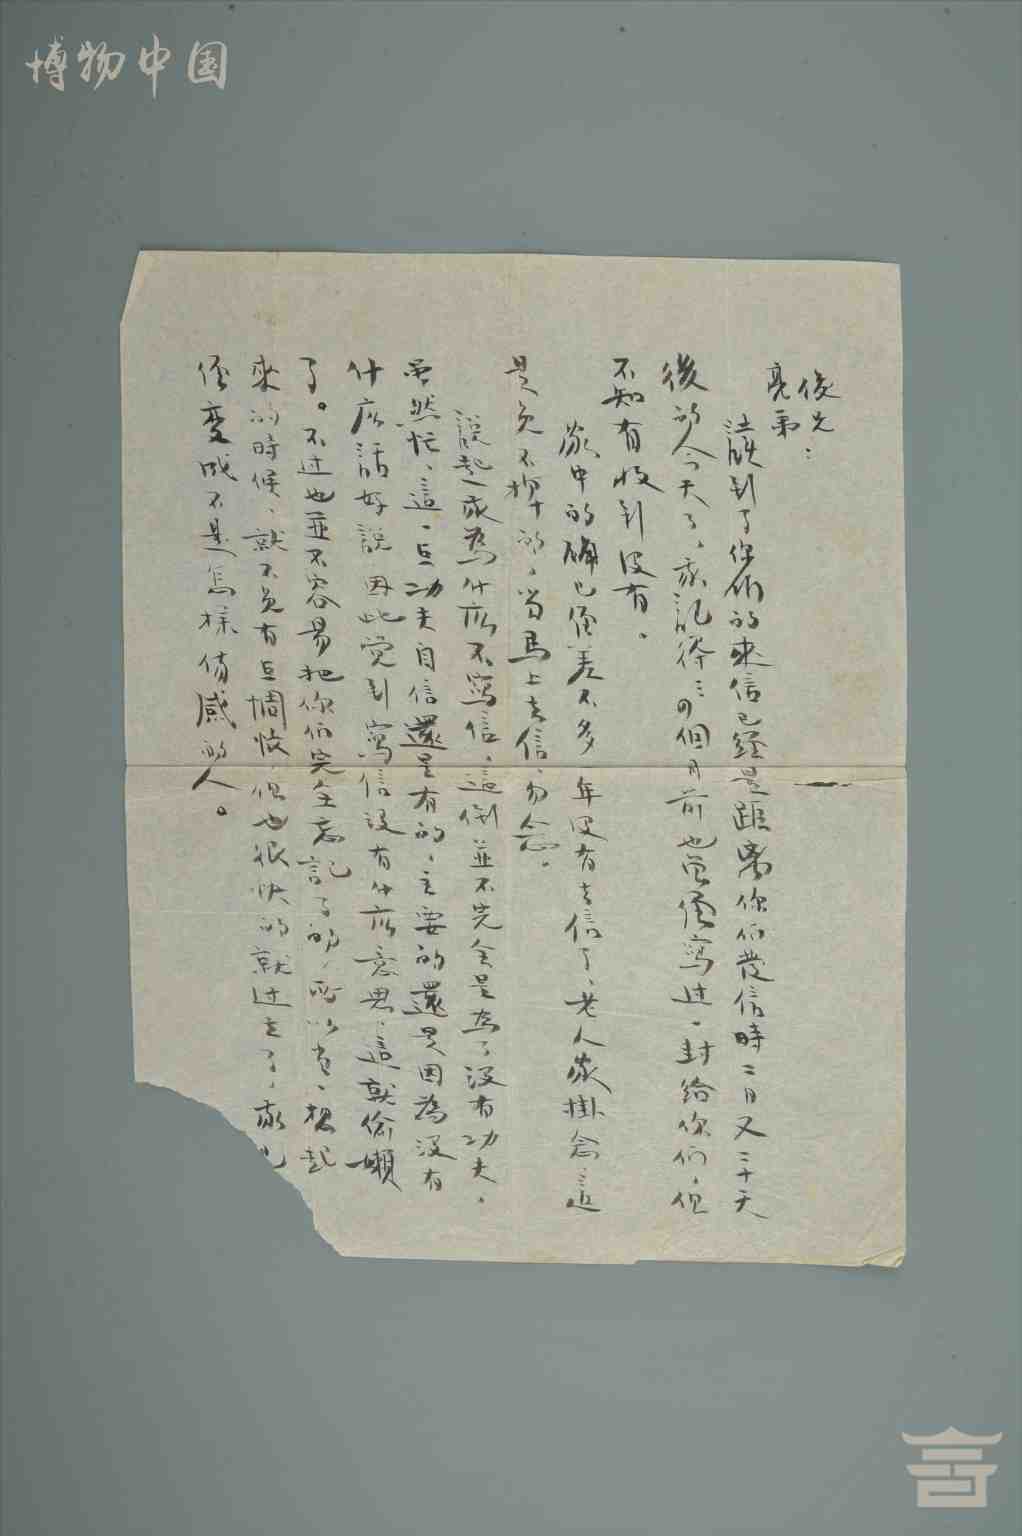 博物中国
俊兄:
亮弟
讀到了你們的來信已經是距离你们發信時二月又二十天
後的今天了,我記得三四個月前也曾經寫过一封給你们,但
不知有收到没有。
家中的确已經差不多一年没有去信了,老人家掛念
是免不掉的,当馬上去信,勿念。
說起我為什広不寫信,這倒並不完全是為了没有功夫,
虽然忙,這一点功夫自信還是有的,主要的還是因為没有
什広話好説因此觉到寫信没有什広意思,這就偷懶
了。不过也並不容易把你们完全忘記了的,所以当一想起
來的時候,就不免有点惆悵,但也很快的就过去了,我已
經变成不是怎樣傷感的人。